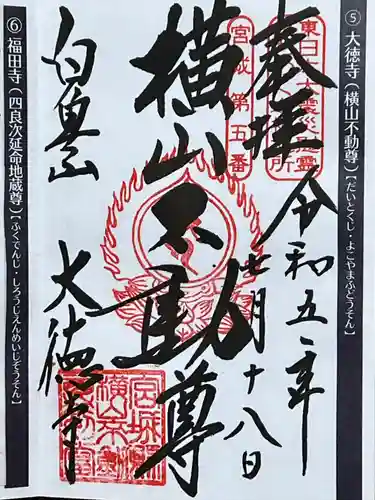 ⑤ 大徳寺（横山不動尊）【だいとくじ・よこやまふどうそん】
奉拝
令和五年
七月十八日
東日本大震災慰霊
宮城第五番
横山不動尊
白魚山
大徳寺
⑥ 福田寺（四良次延命地蔵尊）【ふくでんじ・しろうじえんめいじぞうそん】